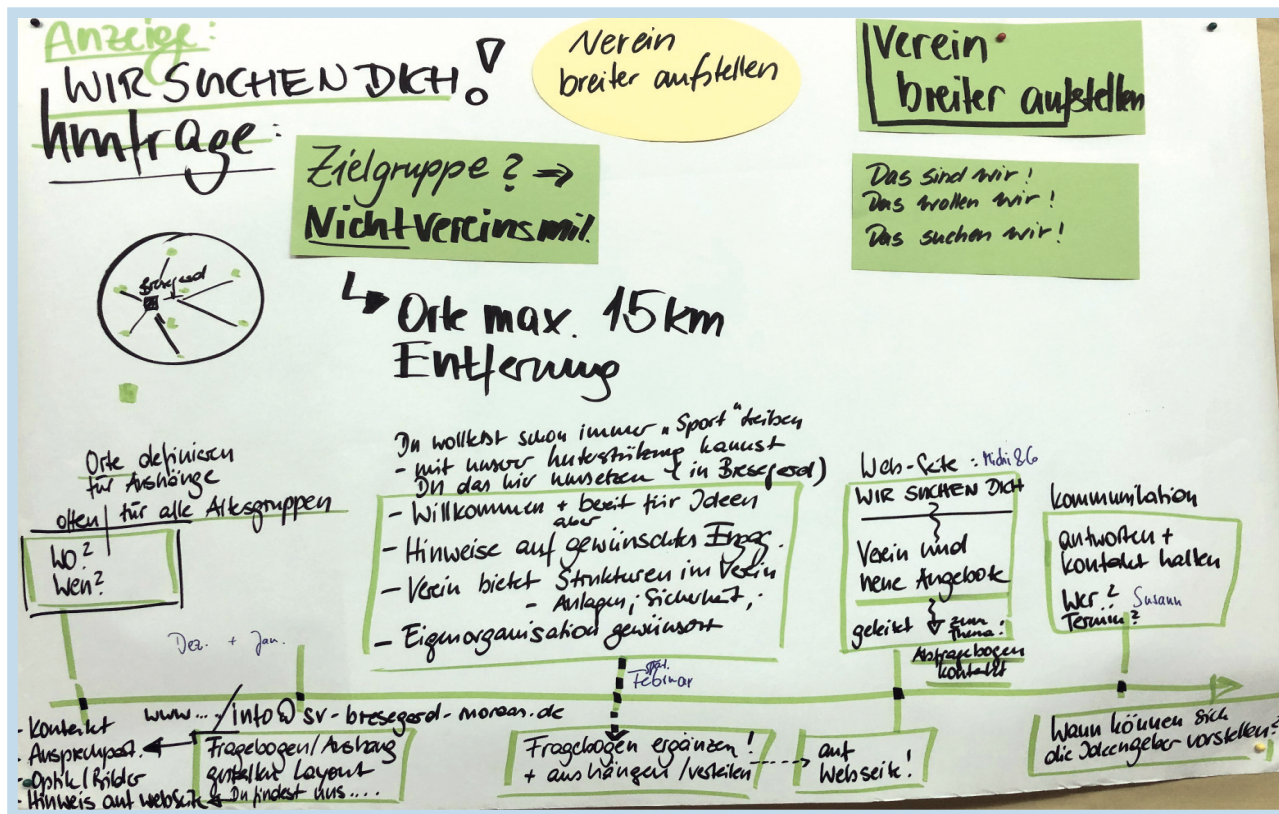 Anzeige:
WIR SUCHEN DICH!
Umfrage:
Verein
breiter aufstellen
Verein
breiter aufstellen
Zielgruppe? ⇒
Nichtvereinsmit.
Das sind wir!
Das wollen wir!
Das suchen wir!
Bresegard
↳ Orte max. 15 km
Entfernung
Orte definieren
für Aushänge
offen | für alle Altersgruppen
Wo?
Wen?
Dez. + Jan.
Du wolltest schon immer "Sport" treiben
- mit unserer Unterstützung kannst
Du das hier umsetzen (in Bresegard)
- Willkommen + bereit für Ideen
aber
- Hinweise auf gewünschtes Engag.
- Verein bietet Strukturen im Verein
- Anlagen, Sicherheit,
- Eigenorganisation gewünscht
spät.
Februar
Web-Seite:
WIR SUCHEN DICH
Verein und
neue Angebote
geleitet
zum
Thema:
Abfragebogen
Kontakt
Kommunikation
antworten +
Kontakt halten
Wer? Susann
Termin?
- Kontakt
- Ansprechpart.
- Optik/Bilder
- Hinweis auf Webseite
www.... / info@sv-bresegard-moraas.de
Fragebogen/Aushang
gestalten Layout
Du findest uns....
Fragebögen ergänzen!
+ aushängen/verteilen
auf
Webseite!
Wann können sich
die Ideengeber vorstellen?